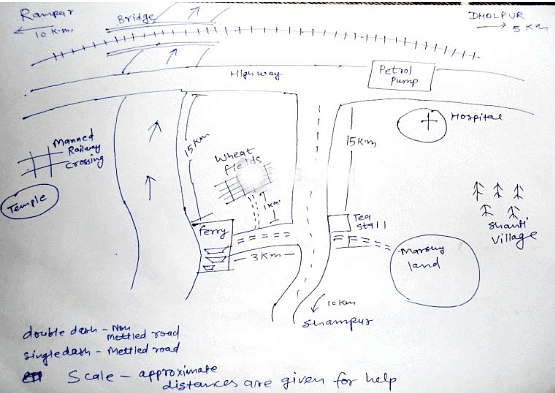 Rampur
10 K.m.
Bridge
DHOLPUR
5 Km
Highway
Petrol
Pump
Hospital
Manned
Railway
Crossing
15Km
Wheat
Fields
15Km
1Km
Temple
Ferry
Tea
Stall
3 Km
Marshy
land
Shanti
village
10Km
Shampur
double dash - Non
Mettled road
single dash - Mettled road
Scale - approximate
distances are given for help